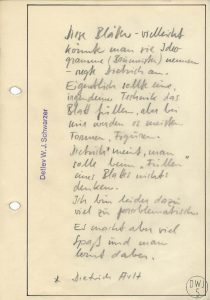 Diese Blätter - vielleicht
könnte man sie Ideo
gramme (Baumuster) nennen
- regte Dietrich an.
Eigentlich sollte eine,
irgendeine Technik das
Blatt füllen, aber bei
uns wurden es meistens
Formen, Figuren.
Dietrich* meint, man
solle beim "Füllen"
eines Blattes nichts
denken.
Ich bin leider dazu
viel zu problematisch.
Es macht aber viel
Spaß und man
lernt dabei.
* Dietrich
Detlev W. J. Schwarzer
DWJ
S